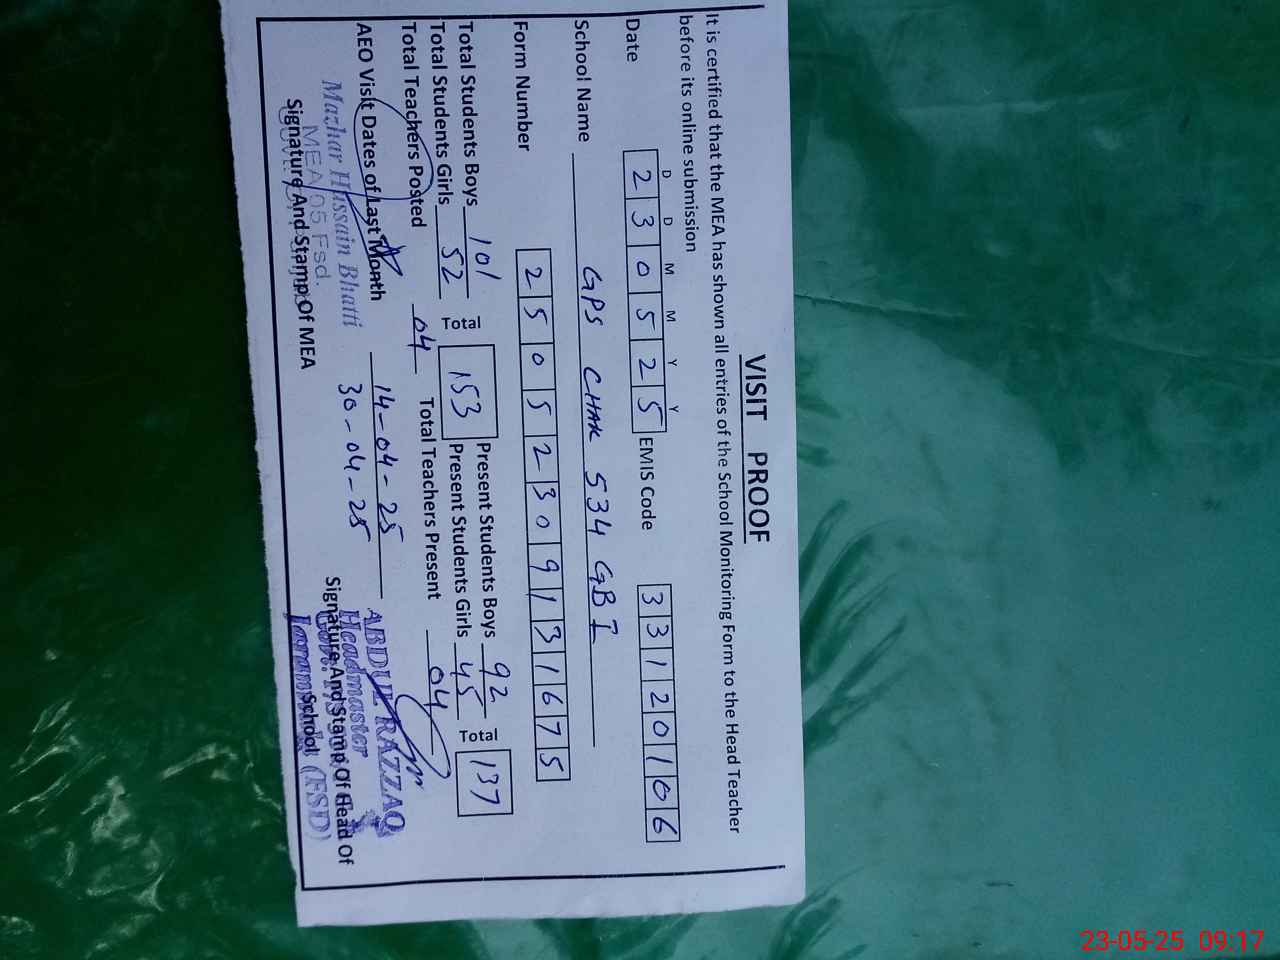 VISIT PROOF
It is certified that the MEA has shown all entries of the School Monitoring Form to the Head Teacher
before its online submission
D D M M Y Y
Date 2 3 0 5 2 5 EMIS Code 3 3 1 2 0 1 0 6
School Name GPS CHAK 534 GB I
Form Number 2 5 0 5 2 3 0 9 1 3 1 6 7 5
Total Students Boys 101 Total 153 Present Students Boys 92 Total 137
Total Students Girls 52 Present Students Girls 45
Total Teachers Posted 04 Total Teachers Present 04
AEO Visit Dates of Last Month 14-04-25
30-04-25
Mazhar Hussain Bhatti
MEA 05 Fsd.
Signature And Stamp Of MEA
ABDUL RAZZAQ
Headmaster
Signature And Stamp Of Head Of
School
(FSD)
23-05-25 09:17